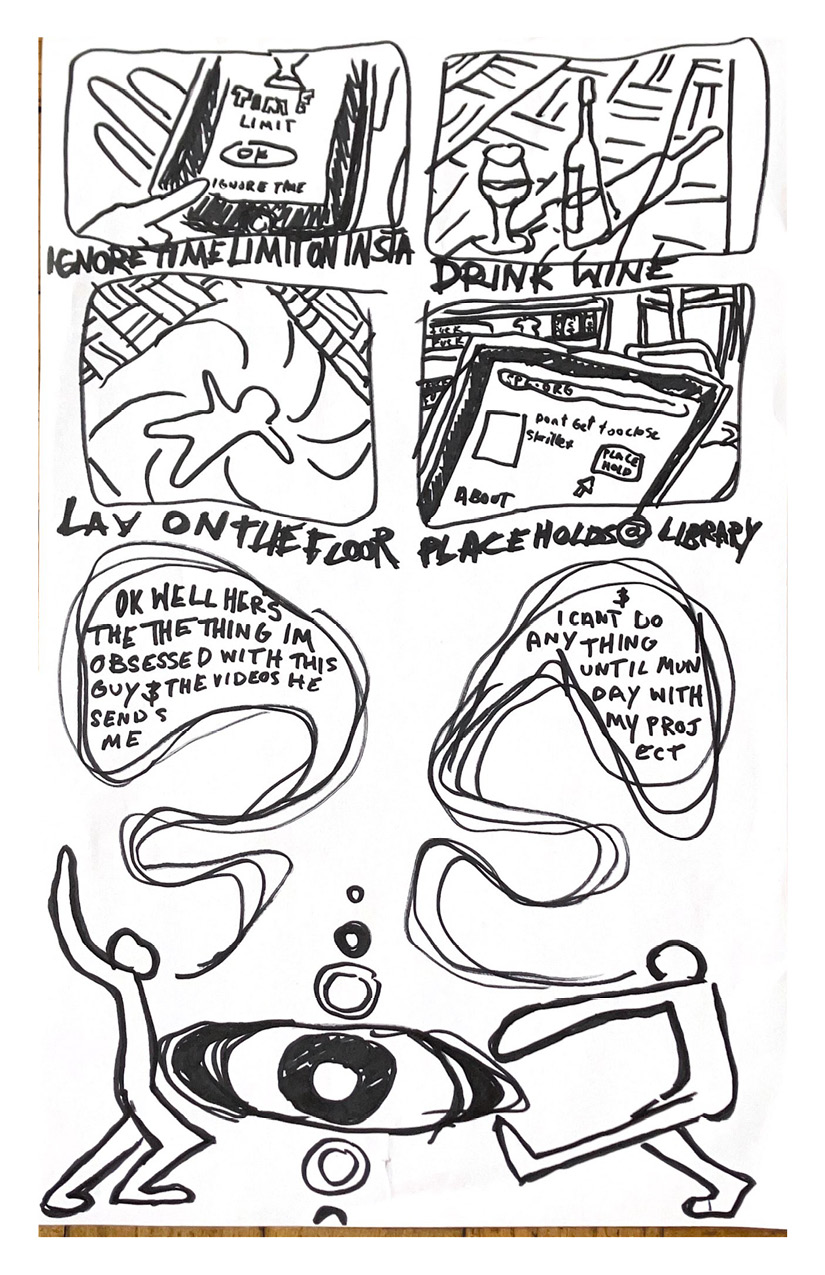 TIME
LIMIT
OK
IGNORE TIME
IGNORE TIME LIMIT ON INSTA
DRINK WINE
LAY ON THE FLOOR
FUCK
.ORG
Dont Get too close
Skrillex
PLACE
HOLD
ABOUT
PLACE HOLDS @ LIBRARY
OK WELL HERS
THE THE THING IM
OBSESSED WITH THIS
GUY $ THE VIDEOS HE
SENDS
ME
$
I CANT DO
ANYTHING
UNTIL MUN
DAY WITH
MY PROJ
ECT